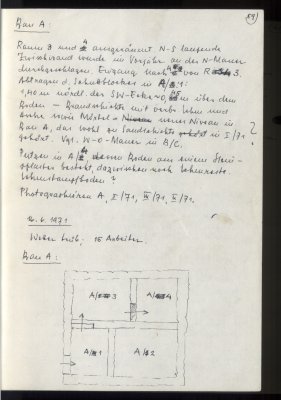 59)
Bau A:
Raum 3 und 4 ausgeräumt. N-S laufende
Zwischenwand wurde im Vorjahr an der N-Mauer
durchgeschlagen. Eingang nach 4 von R 3.
Abtragen d. Schuttblockes in A/1:
1,40 m nördl. der SW-Ecke ~0, m über dem
Boden – Brandschichte mit verbr. Lehm und
Asche sowie Mörtel = neues Niveau in
Bau A, das wohl zu Sandschichte in I/71
gehört. Vgl. W-O-Mauer in B/C. ?
Putzen in A/ Boden aus einem Stein-
pflaster besteht, dazwischen noch Lehmreste.
Lehmestrichboden?
Photographieren A, I/71, IV/71, V/71.
2.6.1971
Wetter trüb. 15 Arbeiter.
Bau A:
A/3 A/4
A/1 A/2